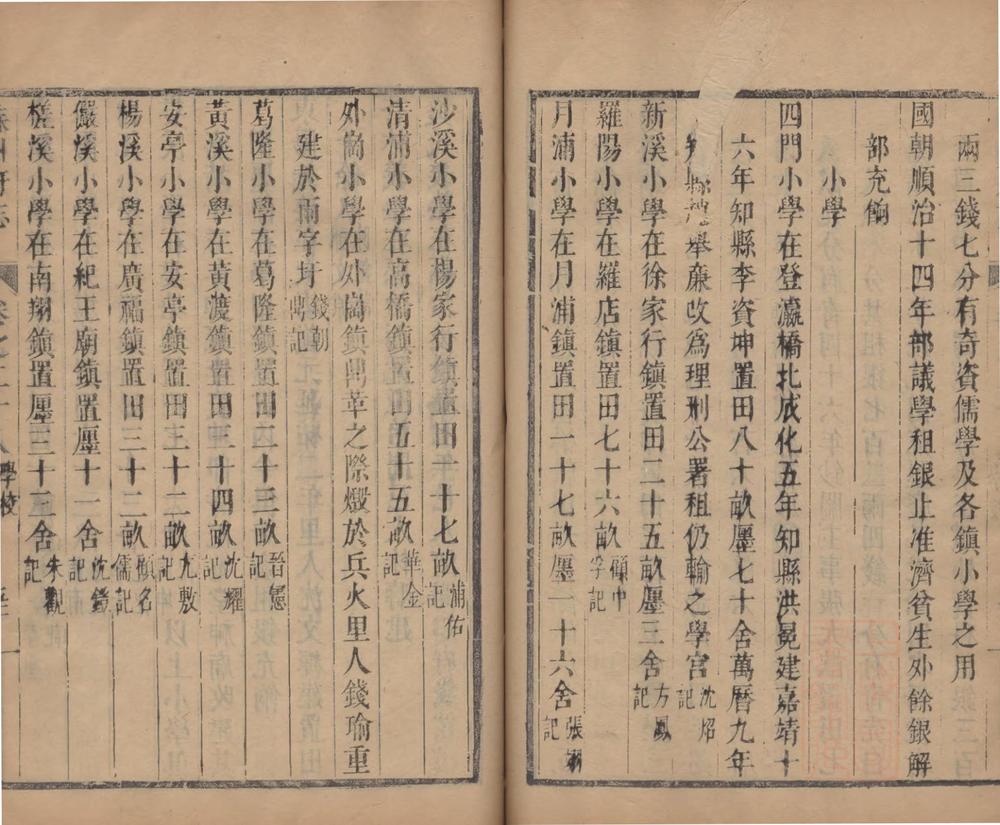 兩三錢七分有奇資儒學及各鎮小學之用
國朝順治十四年部議學租銀止准濟貧生外餘銀解
部充餉
小學
四門小學在登瀛橋北成化五年知縣洪冕建嘉靖十
六年知縣李資坤置田八十畝廛七十舍萬曆九年
縣舉廉改為理刑公署租仍輸之學宮沈炤記
新溪小學在徐家行鎮置田二十五畝廛三舍方鳳記
羅陽小學在羅店鎮置田七十六畝顧中孚記
月浦小學在月浦鎮置田一十七畝廛一十六舍張記
沙溪小學在楊家行鎮置田一十七畝浦佑記
清浦小學在高橋鎮置田五十五畝華金記
外岡小學在外岡鎮萬革之際燬於兵火里人錢瑜重
建於雨字圩錢朝記
葛隆小學在葛隆鎮置田四十三畝晉憲記
黃溪小學在黃渡鎮置田三十四畝沈耀記
安亭小學在安亭鎮置田三十二畝尢敷記
楊溪小學在廣福鎮置田三十二畝傾名儒記
儼溪小學在紀王廟鎮置廛十一舍沈鏓記
槎溪小學在南翔鎮置廛三十三舍朱觀記
卷之二十八 學校